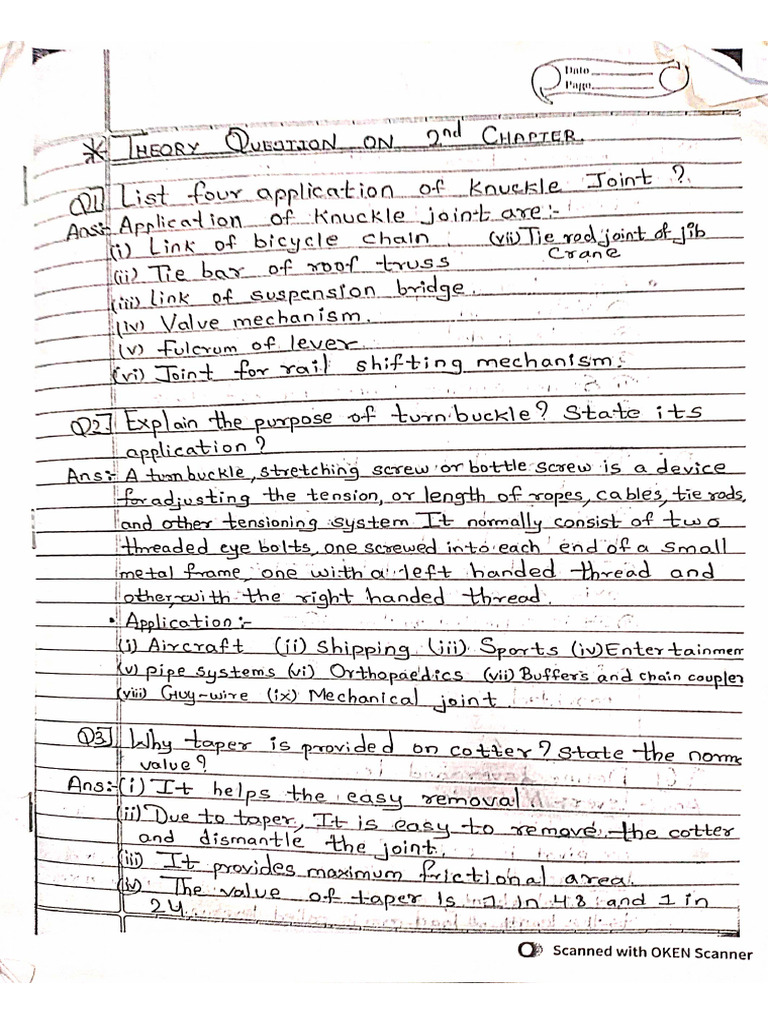 Date
Page
* THEORY QUESTION ON 2nd CHAPTER.
Q1] List four application of Knuckle Joint ?
Ans:- Application of Knuckle joint are:-
(i) Link of bicycle chain (vii) Tie rod joint of jib crane
(ii) Tie bar of roof truss
(iii) Link of suspension bridge.
(iv) Valve mechanism.
(v) Fulcrum of lever
(vi) Joint for rail shifting mechanism.
Q2] Explain the purpose of turnbuckle? State its
application?
Ans:- A turnbuckle, stretching screw or bottle screw is a device
for adjusting the tension, or length of ropes, cables, tie rods,
and other tensioning system It normally consist of two
threaded eye bolts, one screwed into each end of a small
metal frame, one with a left handed thread and
other, with the right handed thread.
• Application:-
(i) Aircraft (ii) Shipping (iii) Sports (iv) Entertainmen
(v) pipe systems (vi) Orthopaedics (vii) Buffers and chain coupler
(viii) Guy-wire (ix) Mechanical joint
Q3] Why taper is provided on cotter? State the norm
value?
Ans:- (i) It helps the easy removal
(ii) Due to taper, It is easy to remove the cotter
and dismantle the joint.
(iii) It provides maximum frictional area.
(iv) The value of taper is 1 in 48 and 1 in
24
Scanned with OKEN Scanner